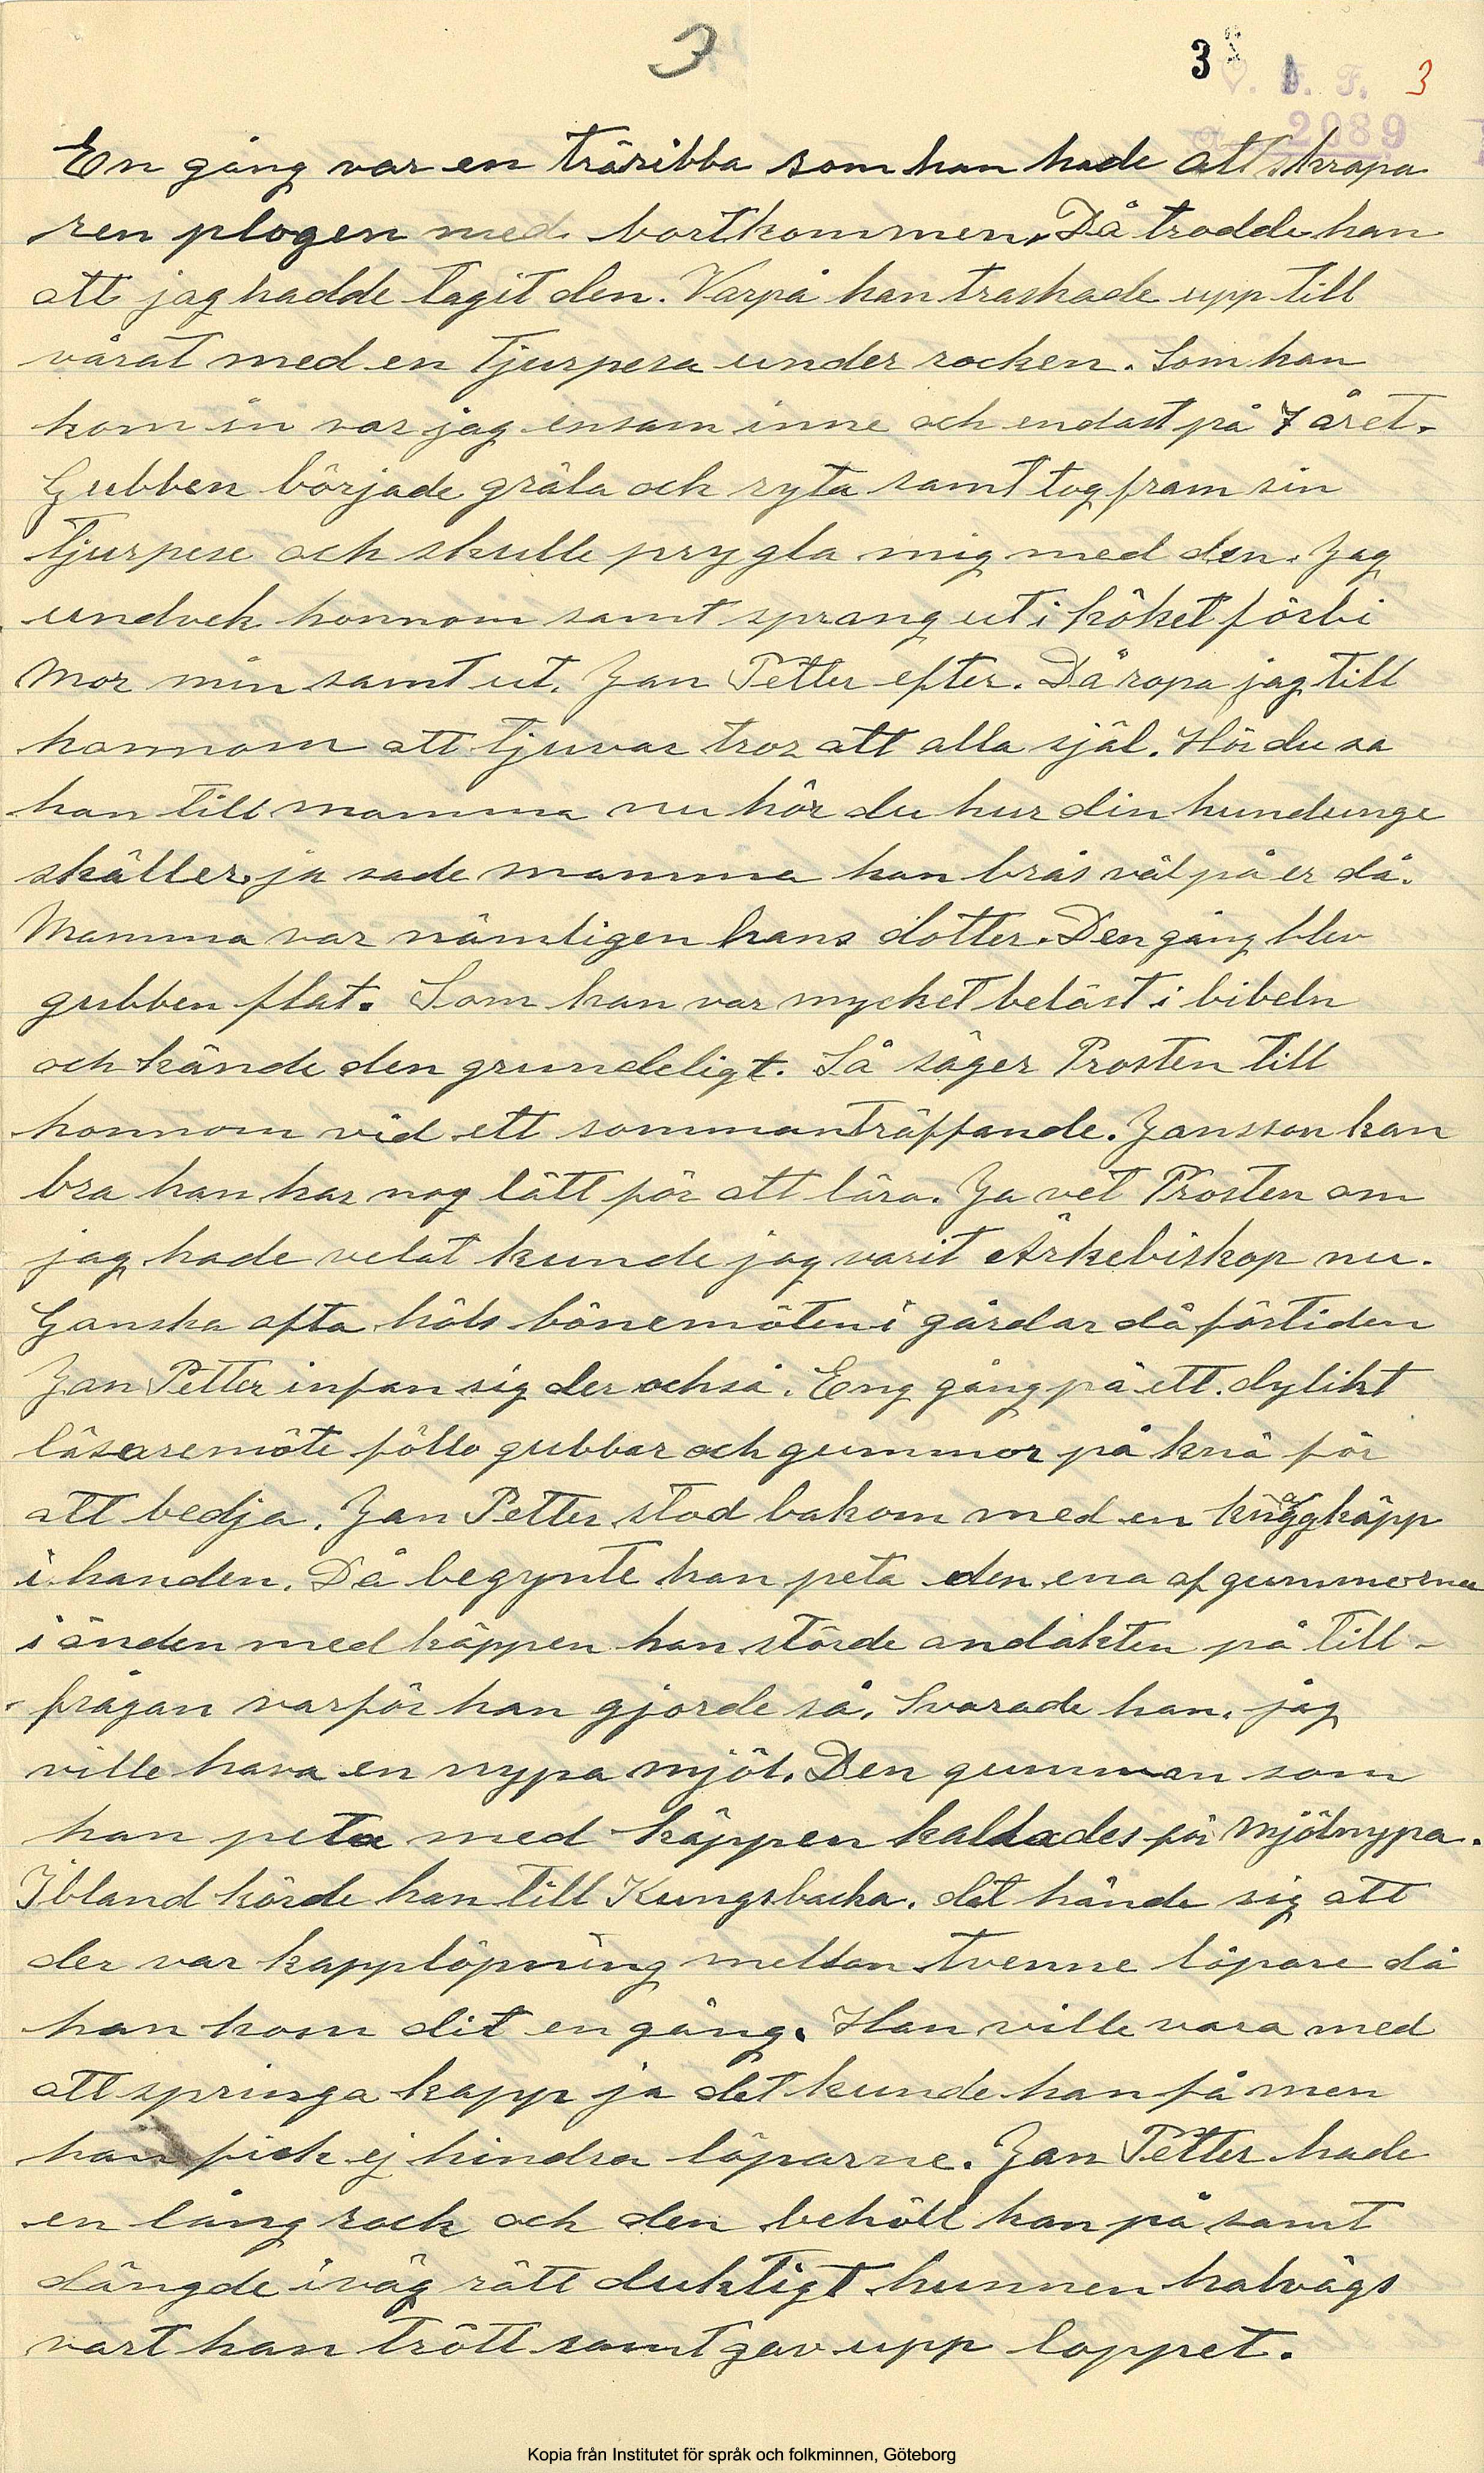 3
3
V. F. F. 3
2089
En gång var en träribba som han hade att skrapa
ren plogen med bortkommen. Då trodde han
att jag hadde tagit den. Varpå han traskade upp till
vårat med en tjurpesa under rocken. Som han
kom in var jag ensam inne och endast på 7 året.
Gubben började gräla och ryta samt tog fram sin
tjurpese och skulle prygla mig med den. Jag
undvek honnom samt sprang ut i köket förbi
Mor min samt ut. Jan Petter efter. Då ropa jag till
honnom att tjuvar tror att alla själ. Hör du sa
han till mamma nu hör du hur din hundunge
skäller, ja sade mamma han brås väl på er då.
Mamma var nämligen hans dotter. Den gång blev
gubben flat. Som han var mycket beläst i bibeln
och kände den grundeligt. Så säger Prosten till
honnom vid ett sommanträffande. Jansson kan
bra han har nog lätt för att lära. Ja vet Prosten om
jag hade velat kunde jag varit Ärkebiskop nu.
Ganska ofta höls bönemöten i gårdar då förtiden
Jan Petter infan sig der också. Eng gång på ett dylikt
läsaremöte föllo gubbar och gummor på knä för
att bedja. Jan Petter stod bakom med en käppp
i handen. Då begynte han peta den ena af gummorna
i änden med käppen han störde andakten på till-
frågan varför han gjorde så. Svarade han. jag
ville hava en nypa mjöl. Den gumman som
han peta med käppen kallades för Mjölnypa.
Ibland körde han till Kungsbacka. det hände sig att
der var kapplöpning mellan tvenne löpare då
han kom dit en gång. Han ville vara med
att springa kapp ja det kunde han få men
han fick ej hindra löparne. Jan Petter hade
en lång rock och den behöll han på samt
dängde iväg rätt duktigt hunnen halvägs
vart han trött samt gav upp loppet.
Kopia från Institutet för språk och folkminnen, Göteborg